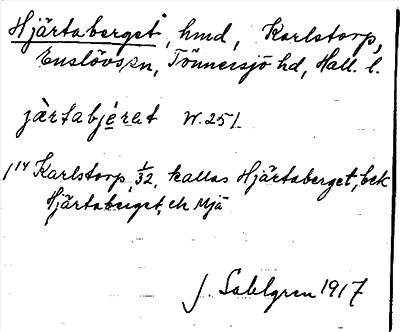 Hjärtaberget, hmd, Karlstorp,
Enslövs sn, Tönnersjö hd, Hall. l.
jà̀rtabjérat W. 251.
1¹⁴ Karlstorp, 1/32, kallas Hjärtaberget, bek
Hjärtaberget, ek Mjä
J. Sahlgren 1917